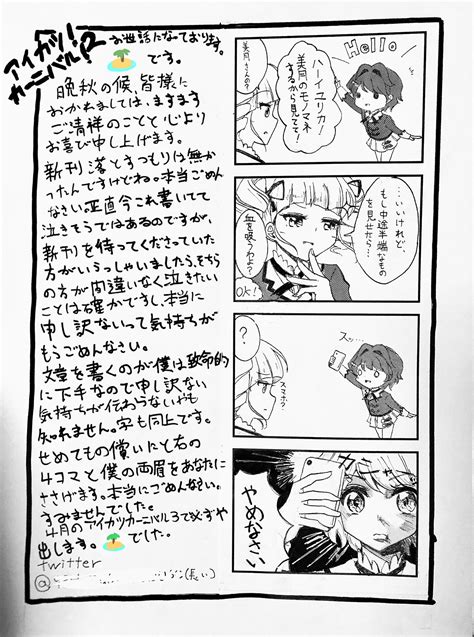 アイカツ!
カーニバル!2
お世話になっております。
です。
晩秋の候、皆様に
おかれましては、ますます
ご清祥のことと心より
お喜び申し上げます。
新刊落とすつもりは無か
ったんですけどね。本当ごめん
なさい。正直今これ書いてて
泣きそうではあるのですが、
新刊を待ってくださっていた
方がいらっしゃいましたら、そちら
の方が間違いなく泣きたい
ことは確かですし、本当に
申し訳ないって気持ちが
もうごめんなさい。
文章を書くのが僕は致命的
に下手なので申し訳ない
気持ちが伝わらないかも
知れません。字も同上です。
せめてもの償いに右の
4コマと僕の両眉をあなたに
ささげます。本当にごめんなさい。
すみませんでした。
4月のアイカツカーニバル3で必ずや
出します。
でした。
twitter
@
(長い)
Hello
ハーイユリカ!
美月のモノマネ
するから見てて!
美月さんの?
…いいけれど、
もし中途半端なもの
を見せたら…
血を吸うわよ?
OK!
スッ…
?
スマホ?
カシャ
やめなさい